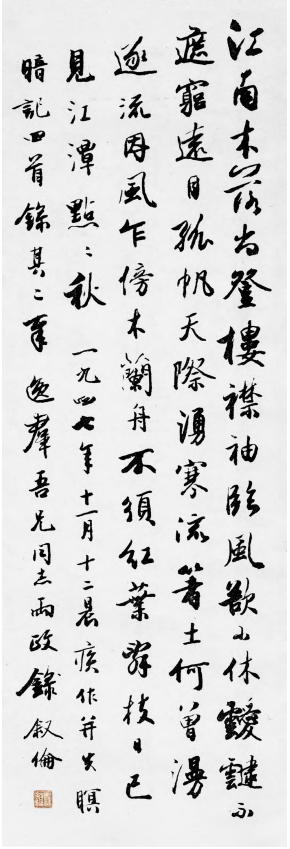 江南木落尚登樓襟袖臨風歡小休靉靆不
遮窮遠目孤帆天際湧寒流箸土何曾漫
逐流因風乍傍木蘭舟不須紅葉辭枝日已
見江潭點〻秋 一九四七年十一月十二晨疾作并失瞑
暗記四首錄其二奉逸羣吾兄同志兩政錄 叙倫